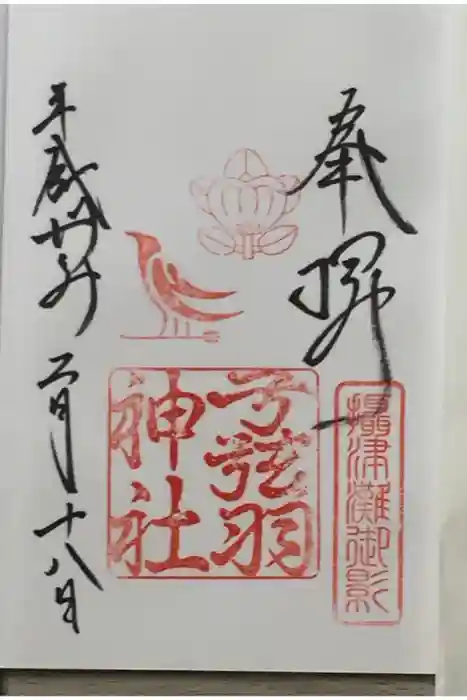 奉拝
攝津灘御影
弓弦羽
神社
平成卅年 二月十八日